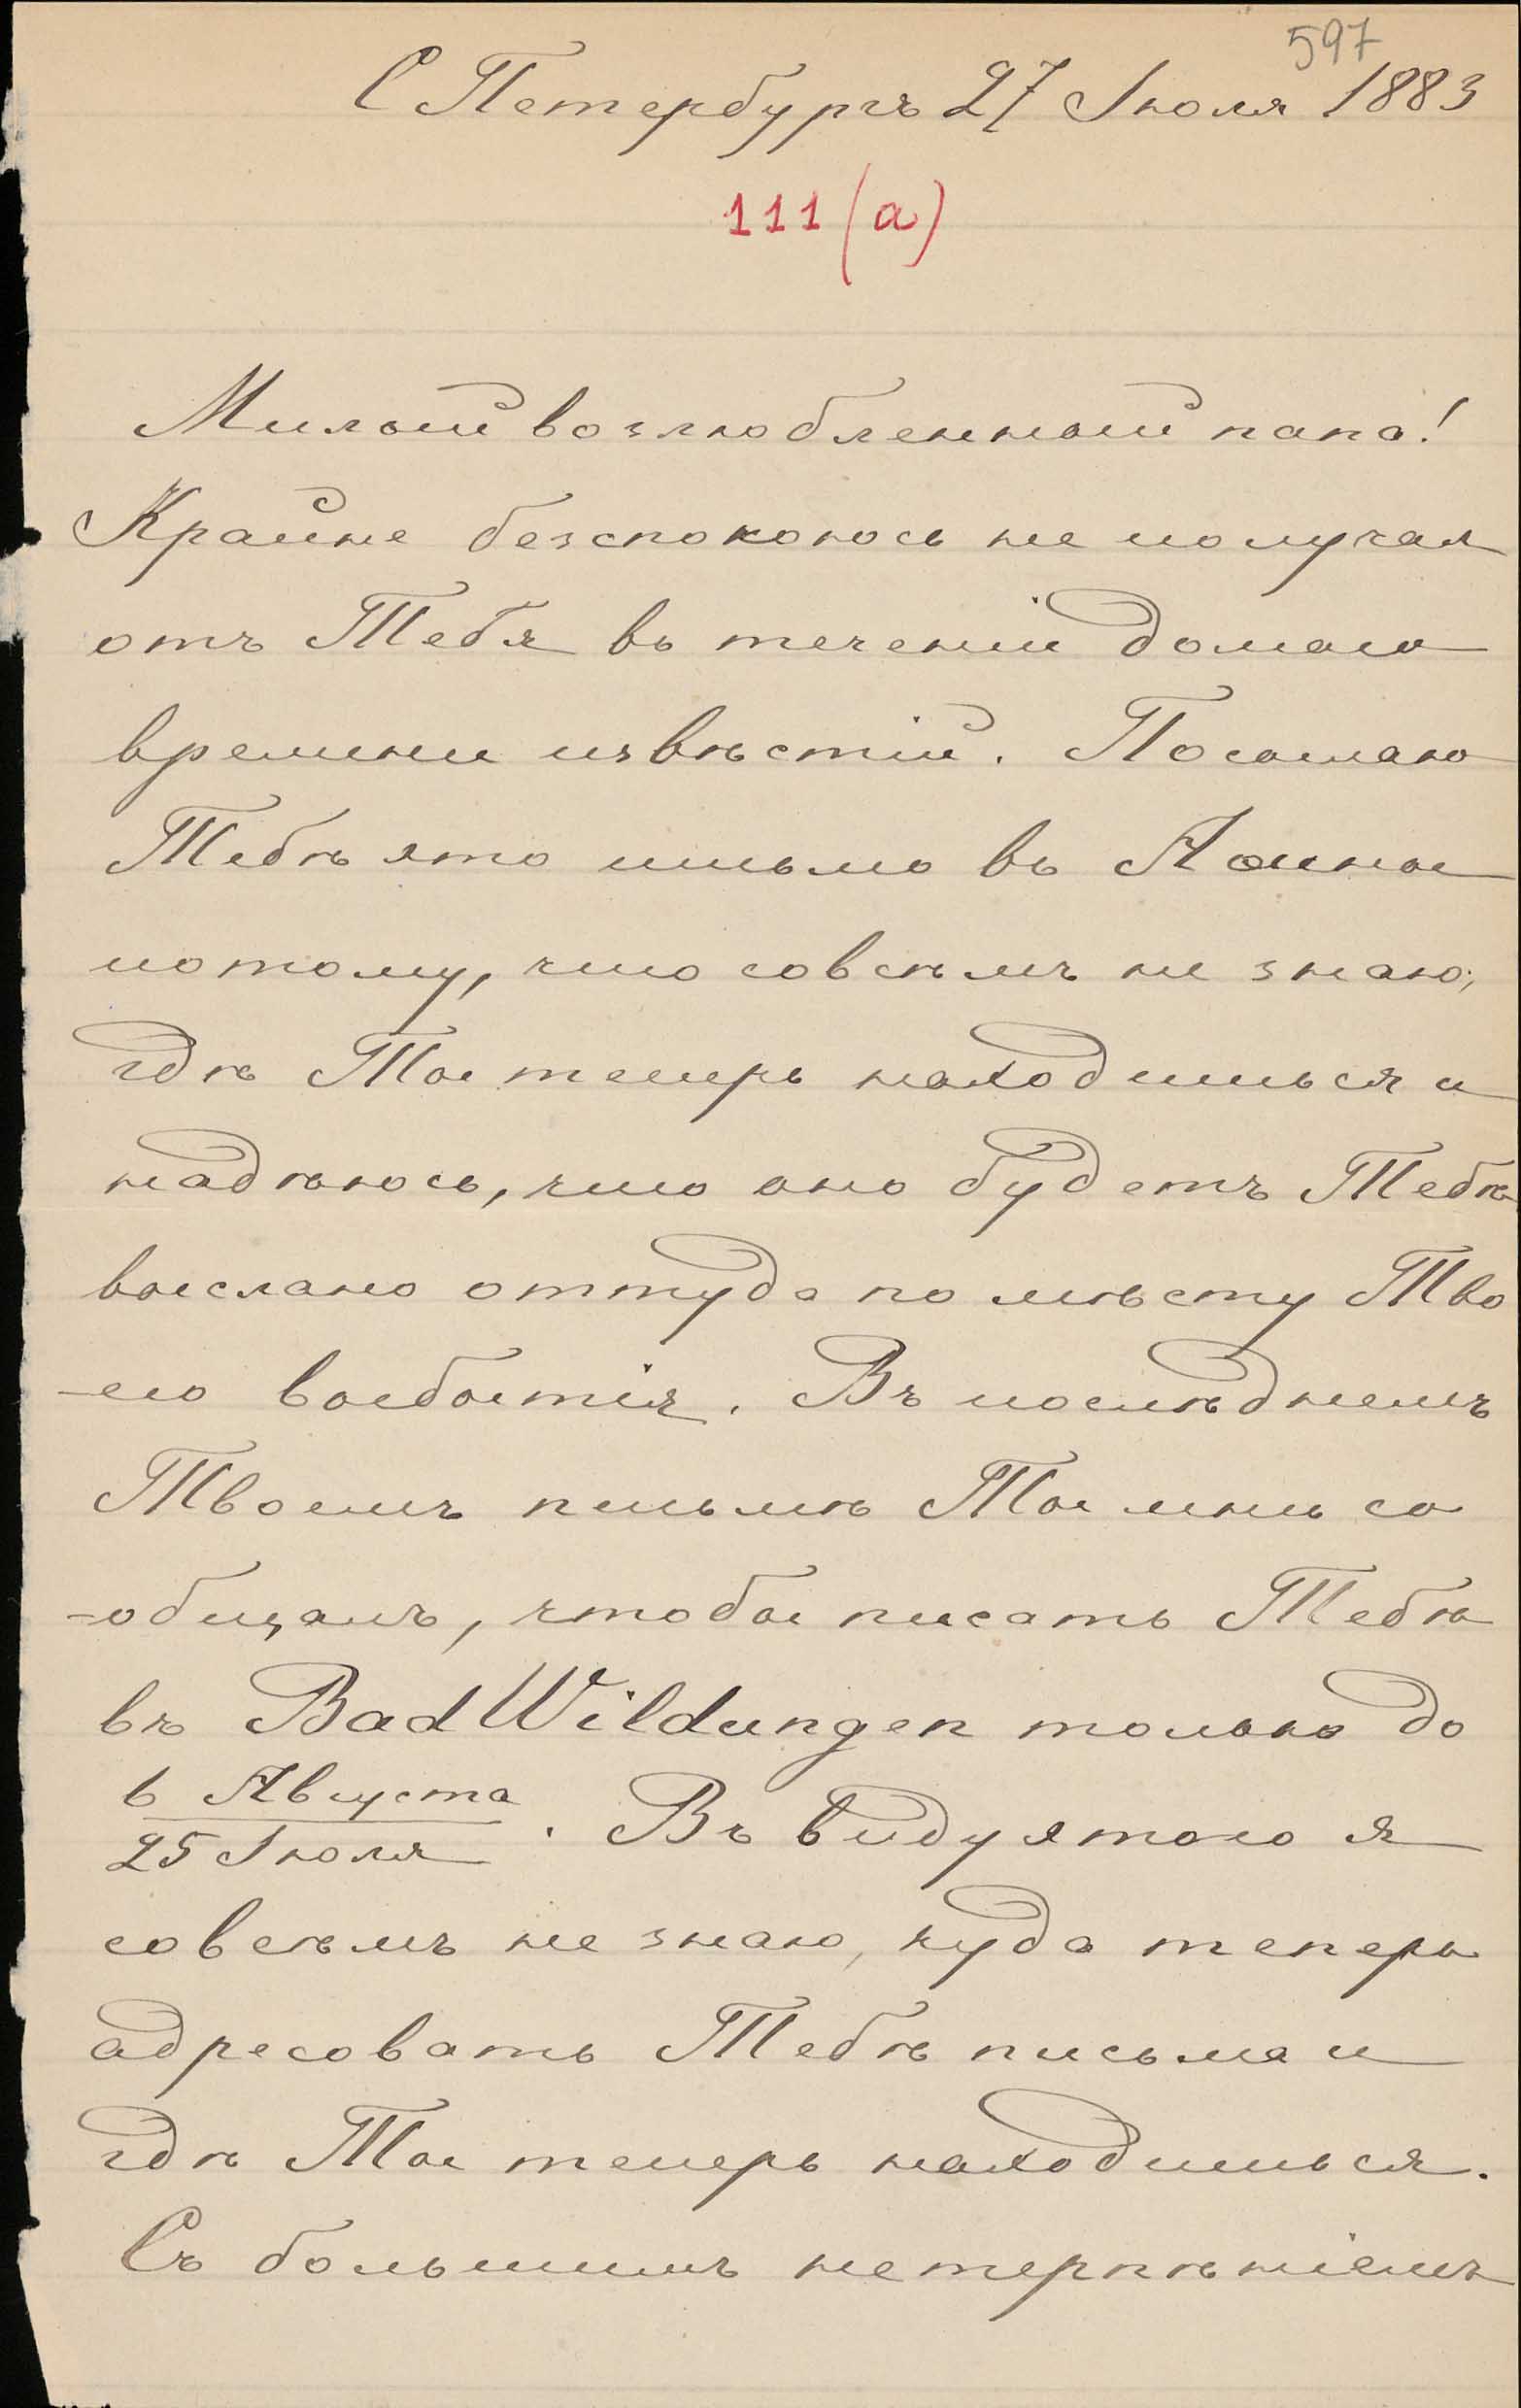 597
С Петербургъ 27 Іюля 1883
111 (а)
Милый возлюбленный папа!
Крайне безспокоюсь не получая
отъ Тебя въ теченіи долгаго
времини извѣстій. Посылаю
Тебѣ это письмо въ
потому, что совсѣмъ не знаю,
гдѣ Ты теперь находишься и
надѣюсь, что оно будетъ Тебѣ
выслано оттуда по мѣсту Тво
-его выбытія. Въ послѣднемъ
Твоемъ письмѣ Ты мнѣ со
-общалъ, чтобы писать Тебѣ
въ Bad Wildungen только до
6 Августа
25 Іюля. Въ виду этого я
совсѣмъ не знаю, куда теперь
адресовать Тебѣ письма и
гдѣ Ты теперь находишься.
Съ большимъ нетерпѣніемъ